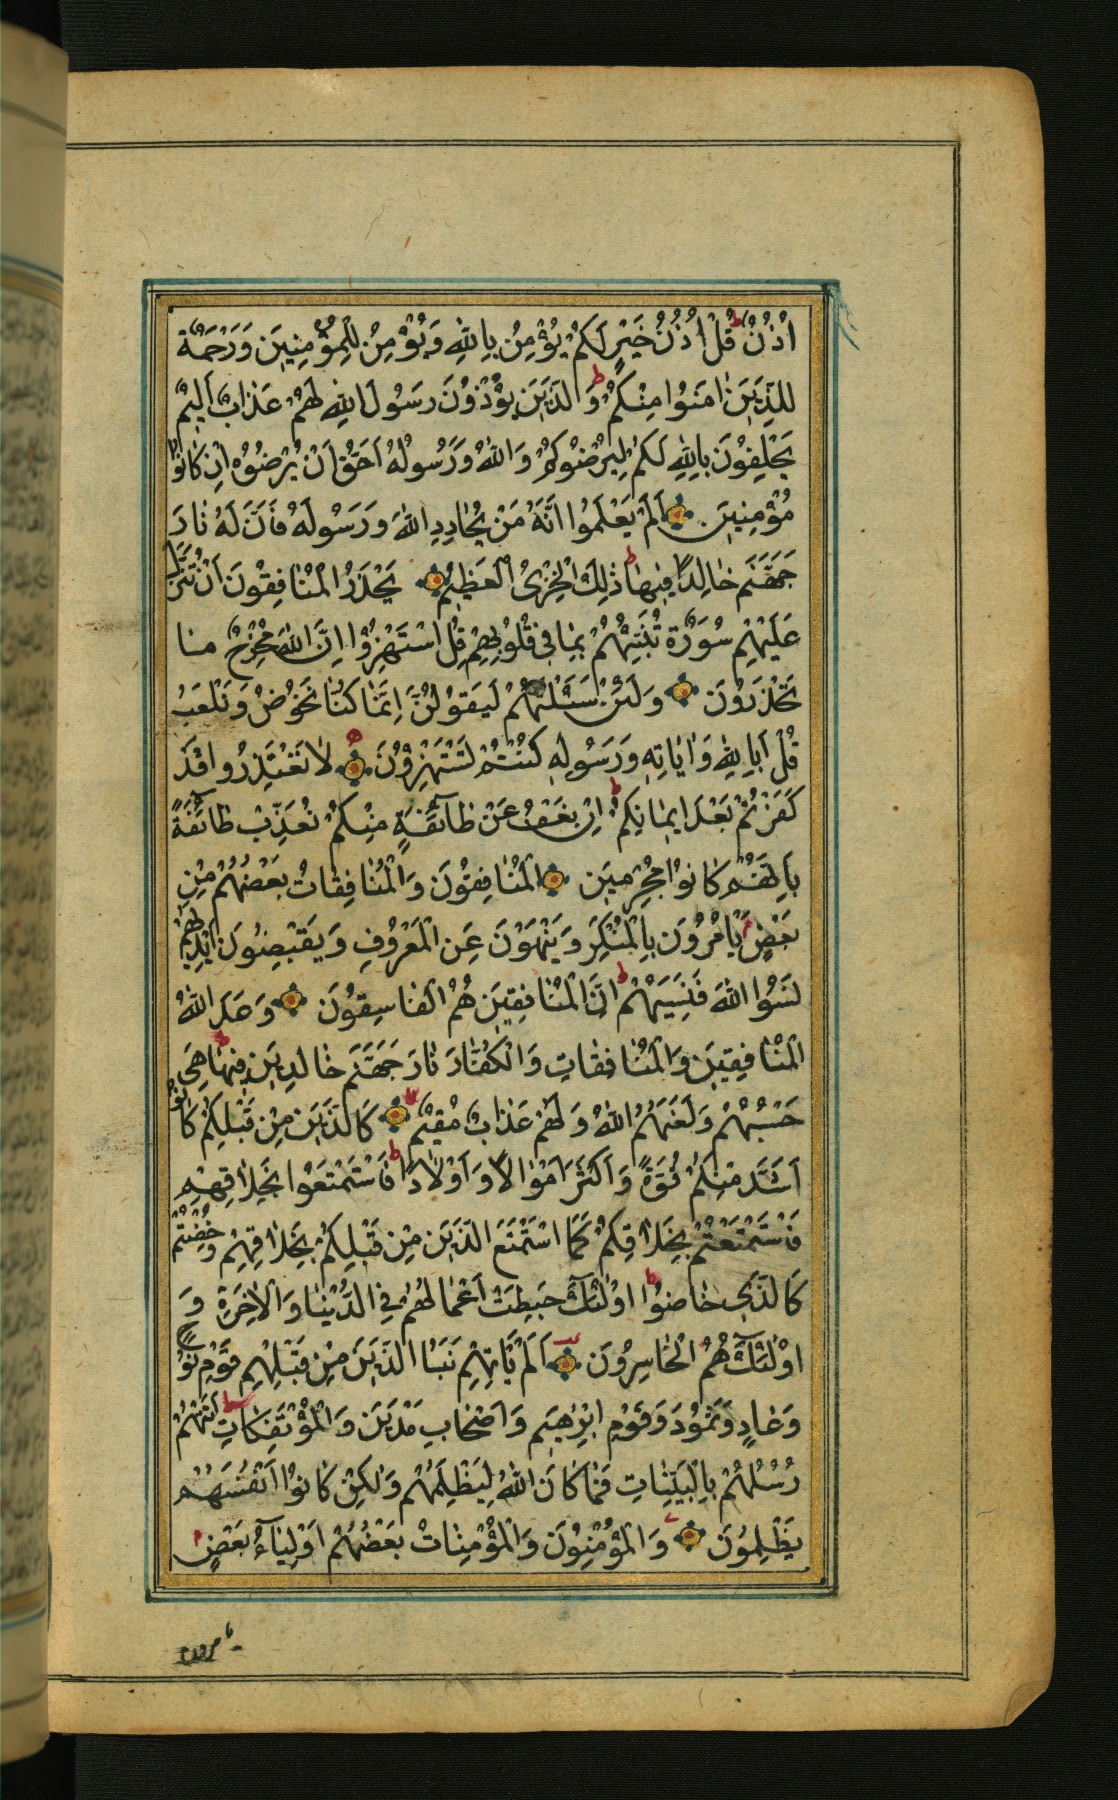 اُذُنٌ قُلْ اُذُنُ خَيْرٍ لَكُمْ يُؤْمِنُ بِاللّٰهِ وَيُؤْمِنُ لِلْمُؤْمِنِينَ وَرَحْمَةٌ
لِلَّذِينَ اٰمَنُوا مِنْكُمْ وَالَّذِينَ يُؤْذُونَ رَسُولَ اللّٰهِ لَهُمْ عَذَابٌ اَلِيمٌ
يَحْلِفُونَ بِاللّٰهِ لَكُمْ لِيُرْضُوكُمْ وَاللّٰهُ وَرَسُولُهُ اَحَقُّ اَنْ يُرْضُوهُ اِنْ كَانُوا
مُؤْمِنِينَ اَلَمْ يَعْلَمُوا اَنَّهُ مَنْ يُحَادِدِ اللّٰهَ وَرَسُولَهُ فَاَنَّ لَهُ نَارَ
جَهَنَّمَ خَالِدًا فِيهَا ذٰلِكَ الْخِزْىُ الْعَظِيمُ يَحْذَرُ الْمُنَافِقُونَ اَنْ تُنَزَّلَ
عَلَيْهِمْ سُورَةٌ تُنَبِّئُهُمْ بِمَا فِي قُلُوبِهِمْ قُلِ اسْتَهْزِؤُا اِنَّ اللّٰهَ مُخْرِجٌ مَا
تَحْذَرُونَ وَلَئِنْ سَئَلْتَهُمْ لَيَقُولُنَّ اِنَّمَا كُنَّا نَخُوضُ وَنَلْعَبُ
قُلْ اَبِاللّٰهِ وَاٰيَاتِهِ وَرَسُولِهِ كُنْتُمْ تَسْتَهْزِؤُنَ لَا تَعْتَذِرُوا قَدْ
كَفَرْتُمْ بَعْدَ اِيمَانِكُمْ اِنْ نَعْفُ عَنْ طَآئِفَةٍ مِنْكُمْ نُعَذِّبْ طَآئِفَةً
بِاَنَّهُمْ كَانُوا مُجْرِمِينَ اَلْمُنَافِقُونَ وَالْمُنَافِقَاتُ بَعْضُهُمْ مِنْ
بَعْضٍ يَاْمُرُونَ بِالْمُنْكَرِ وَيَنْهَوْنَ عَنِ الْمَعْرُوفِ وَيَقْبِضُونَ اَيْدِيَهُمْ
نَسُوا اللّٰهَ فَنَسِيَهُمْ اِنَّ الْمُنَافِقِينَ هُمُ الْفَاسِقُونَ وَعَدَ اللّٰهُ
الْمُنَافِقِينَ وَالْمُنَافِقَاتِ وَالْكُفَّارَ نَارَ جَهَنَّمَ خَالِدِينَ فِيهَا هِىَ
حَسْبُهُمْ وَلَعَنَهُمُ اللّٰهُ وَلَهُمْ عَذَابٌ مُقِيمٌ كَالَّذِينَ مِنْ قَبْلِكُمْ كَانُوا
اَشَدَّ مِنْكُمْ قُوَّةً وَاَكْثَرَ اَمْوَالًا وَاَوْلَادًا فَاسْتَمْتَعُوا بِخَلَاقِهِمْ
فَاسْتَمْتَعْتُمْ بِخَلَاقِكُمْ كَمَا اسْتَمْتَعَ الَّذِينَ مِنْ قَبْلِكُمْ بِخَلَاقِهِمْ وَخُضْتُمْ
كَالَّذِى خَاضُوا اُولٰئِكَ حَبِطَتْ اَعْمَالُهُمْ فِي الدُّنْيَا وَالْاٰخِرَةِ وَ
اُولٰئِكَ هُمُ الْخَاسِرُونَ اَلَمْ يَاْتِهِمْ نَبَأُ الَّذِينَ مِنْ قَبْلِهِمْ قَوْمِ نُوحٍ
وَعَادٍ وَثَمُودَ وَقَوْمِ اِبْرٰهِيمَ وَاَصْحَابِ مَدْيَنَ وَالْمُؤْتَفِكَاتِ اَتَتْهُمْ
رُسُلُهُمْ بِالْبَيِّنَاتِ فَمَا كَانَ اللّٰهُ لِيَظْلِمَهُمْ وَلٰكِنْ كَانُوا اَنْفُسَهُمْ
يَظْلِمُونَ وَالْمُؤْمِنُونَ وَالْمُؤْمِنَاتُ بَعْضُهُمْ اَوْلِيَآءُ بَعْضٍ
يامرون